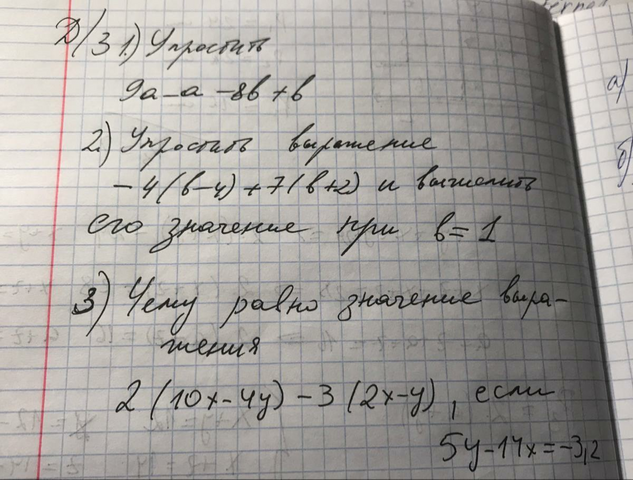 Д/З 1) Упростить
9а - а - 8в + в
2) Упростить выражение
- 4(в-4) + 7(в+2) и вычислить
его значение при в = 1
3) Чему равно значение выра-
жения
2 (10х-4у) - 3 (2х-у), если
5у-14х = -3,2
а)
б)